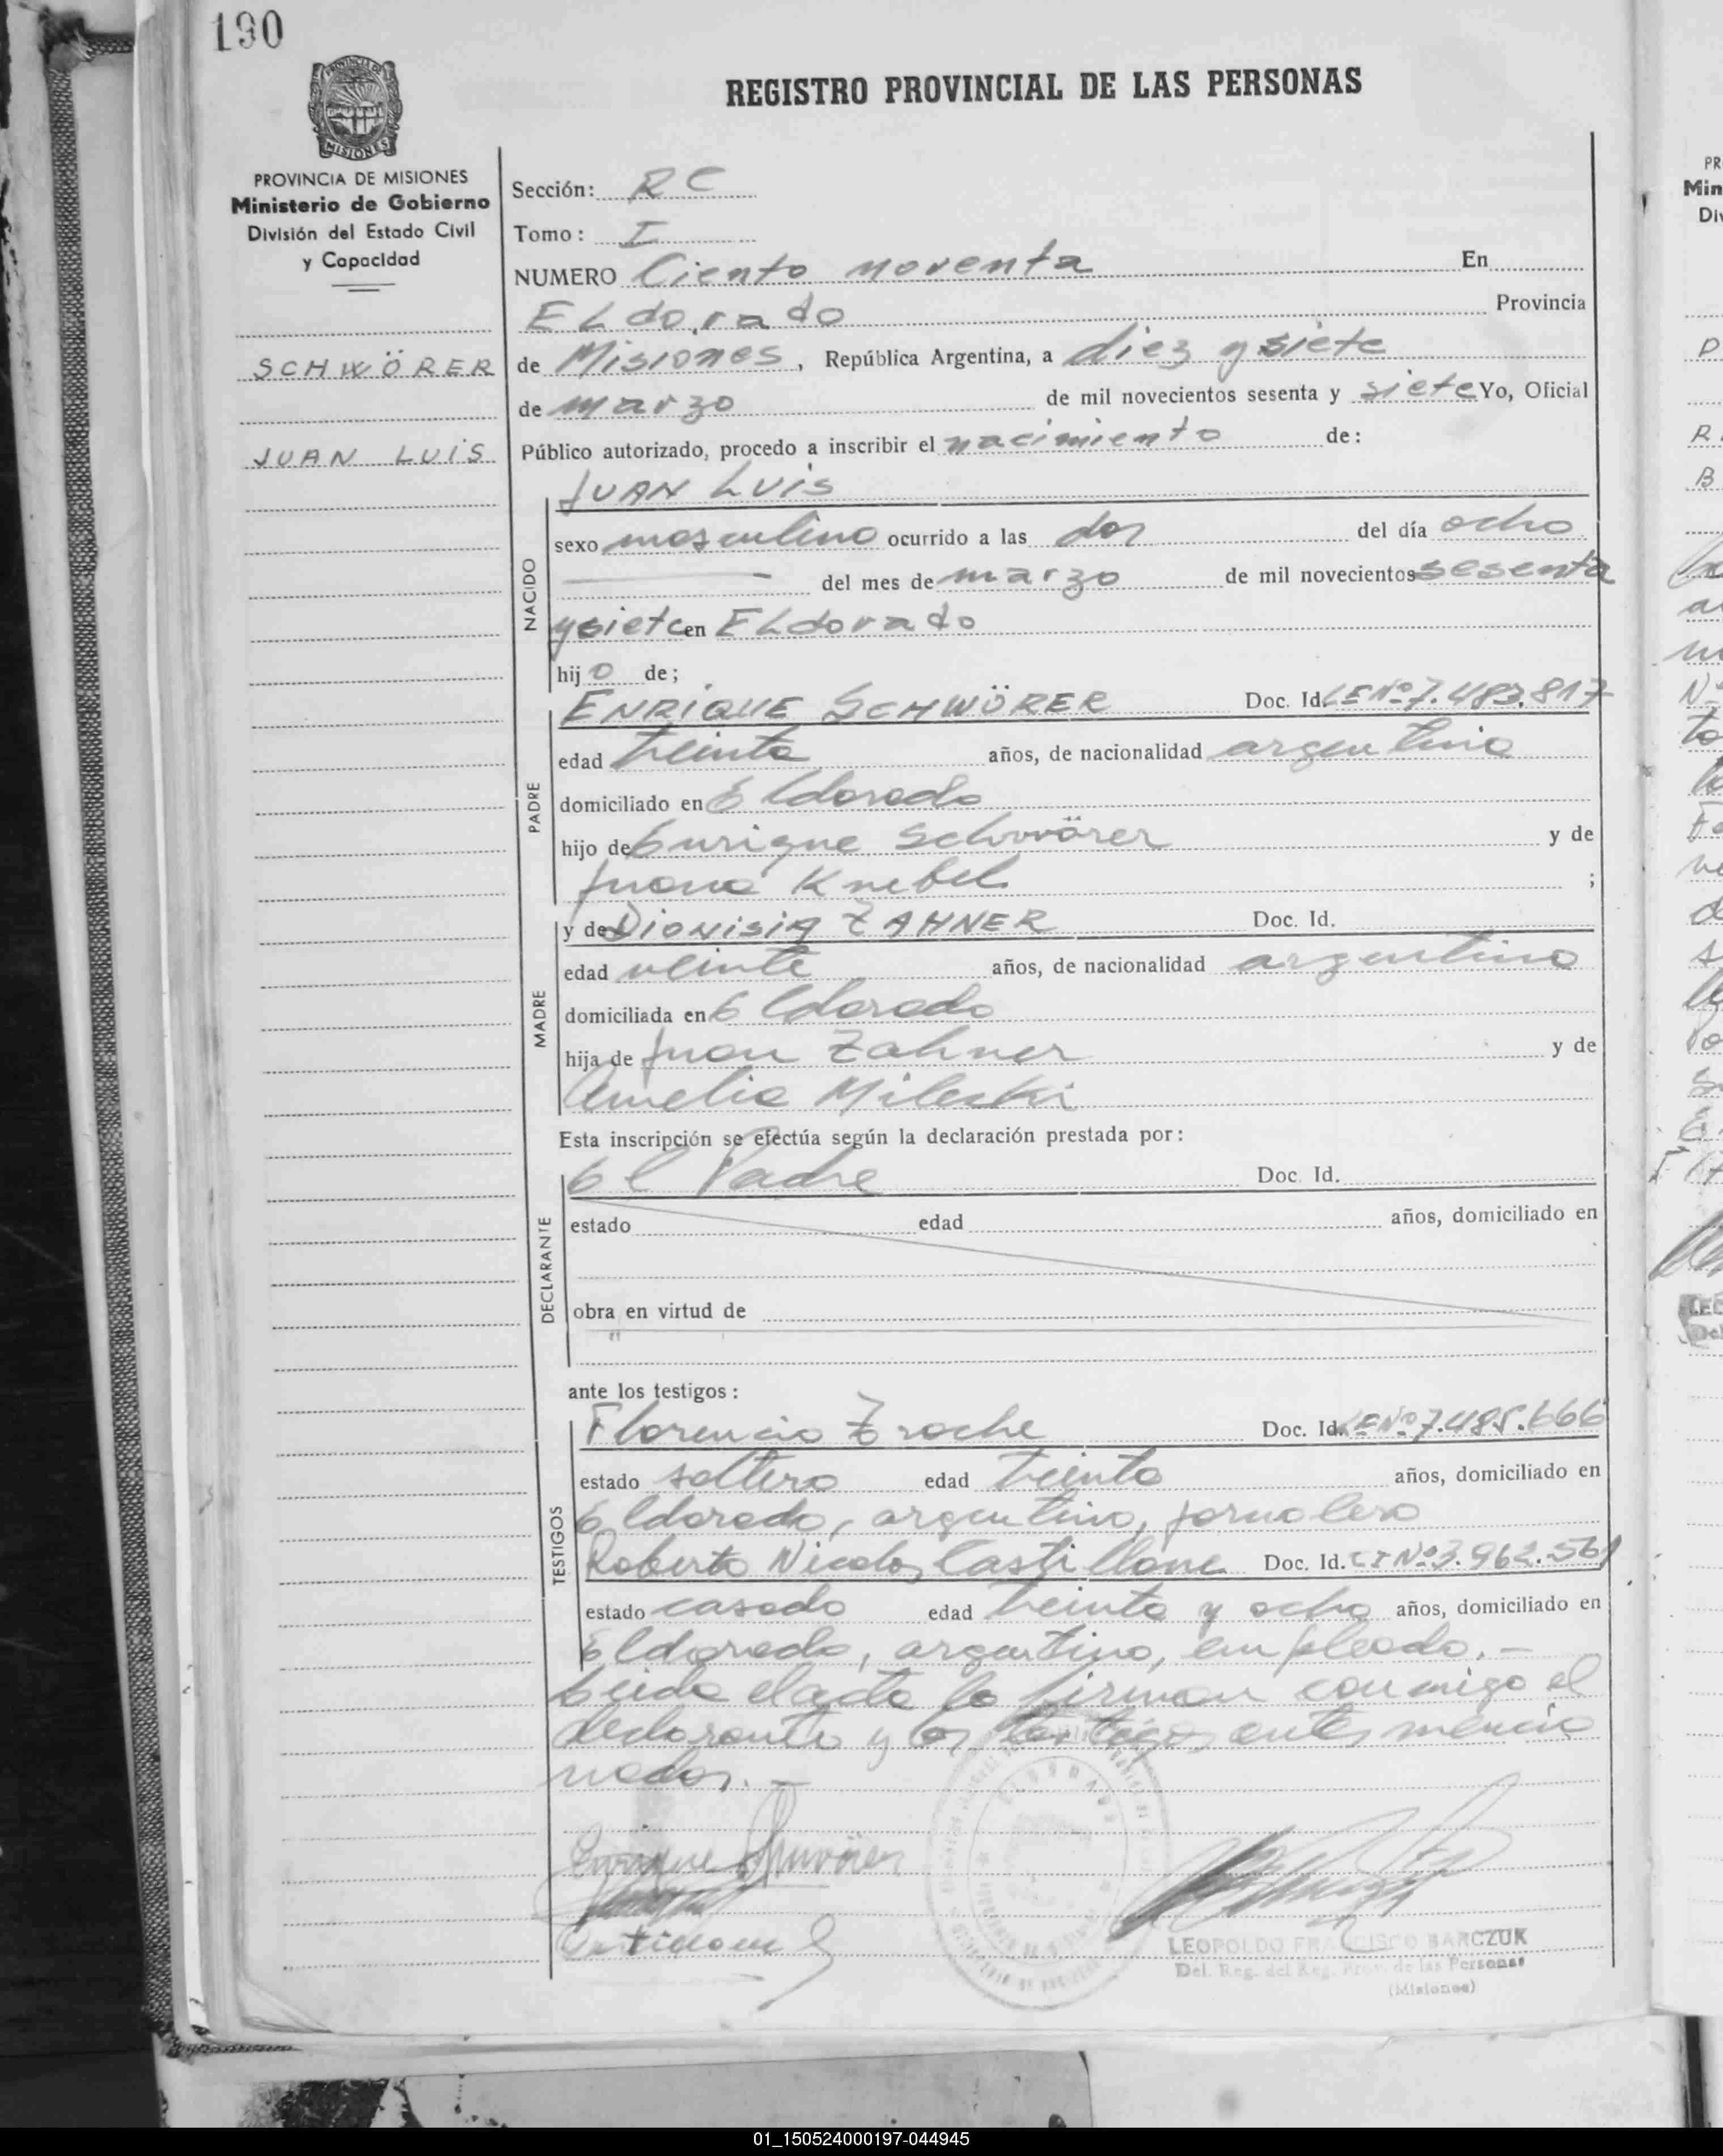 190
REGISTRO PROVINCIAL DE LAS PERSONAS
PROVINCIA DE MISIONES
Ministerio de Gobierno
División del Estado Civil
y Capacidad
SCHWÖRER
JUAN LUIS
Sección: R C
Tomo: I
NUMERO Ciento noventa En
ELdorado Provincia
de Misiones, República Argentina, a diez y siete
de marzo de mil novecientos sesenta y siete Yo, Oficial
Público autorizado, procedo a inscribir el nacimiento de:
JUAN LUIS
NACIDO
sexo masculino ocurrido a las dos del día ocho
del mes de marzo de mil novecientos sesenta
y siete en ELdorado
hijo de;
PADRE
ENRIQUE SCHWÖRER Doc. Id. LE Nº 7.483.817
edad treinta años, de nacionalidad argentina
domiciliado en Eldorado
hijo de Enrique Schwörer y de
Juana Knebel ;
MADRE
y de Dionisia ZAHNER Doc. Id.
edad veinte años, de nacionalidad argentina
domiciliada en Eldorado
hija de Juan Zahner y de
Amelia Mileski
Esta inscripción se efectúa según la declaración prestada por:
DECLARANTE
El Padre Doc. Id.
estado edad años, domiciliado en
obra en virtud de
ante los testigos:
TESTIGOS
Florencio Zroche Doc. Id. LE Nº 7.485.666
estado soltero edad treinta años, domiciliado en
Eldorado, argentino, jornalero
Roberto Nicolas Castillone Doc. Id. CI Nº 3.962.561
estado casado edad treinta y ocho años, domiciliado en
Eldorado, argentino, empleado.-
Leida el acta la firman conmigo el
declarante y los testigos antes mencio
nados.-
Enrique Schwörer
LEOPOLDO FRANCISCO BARCZUK
Del. Reg. del Reg. Prov. de las Personas
(Misiones)
01_150524000197-044945